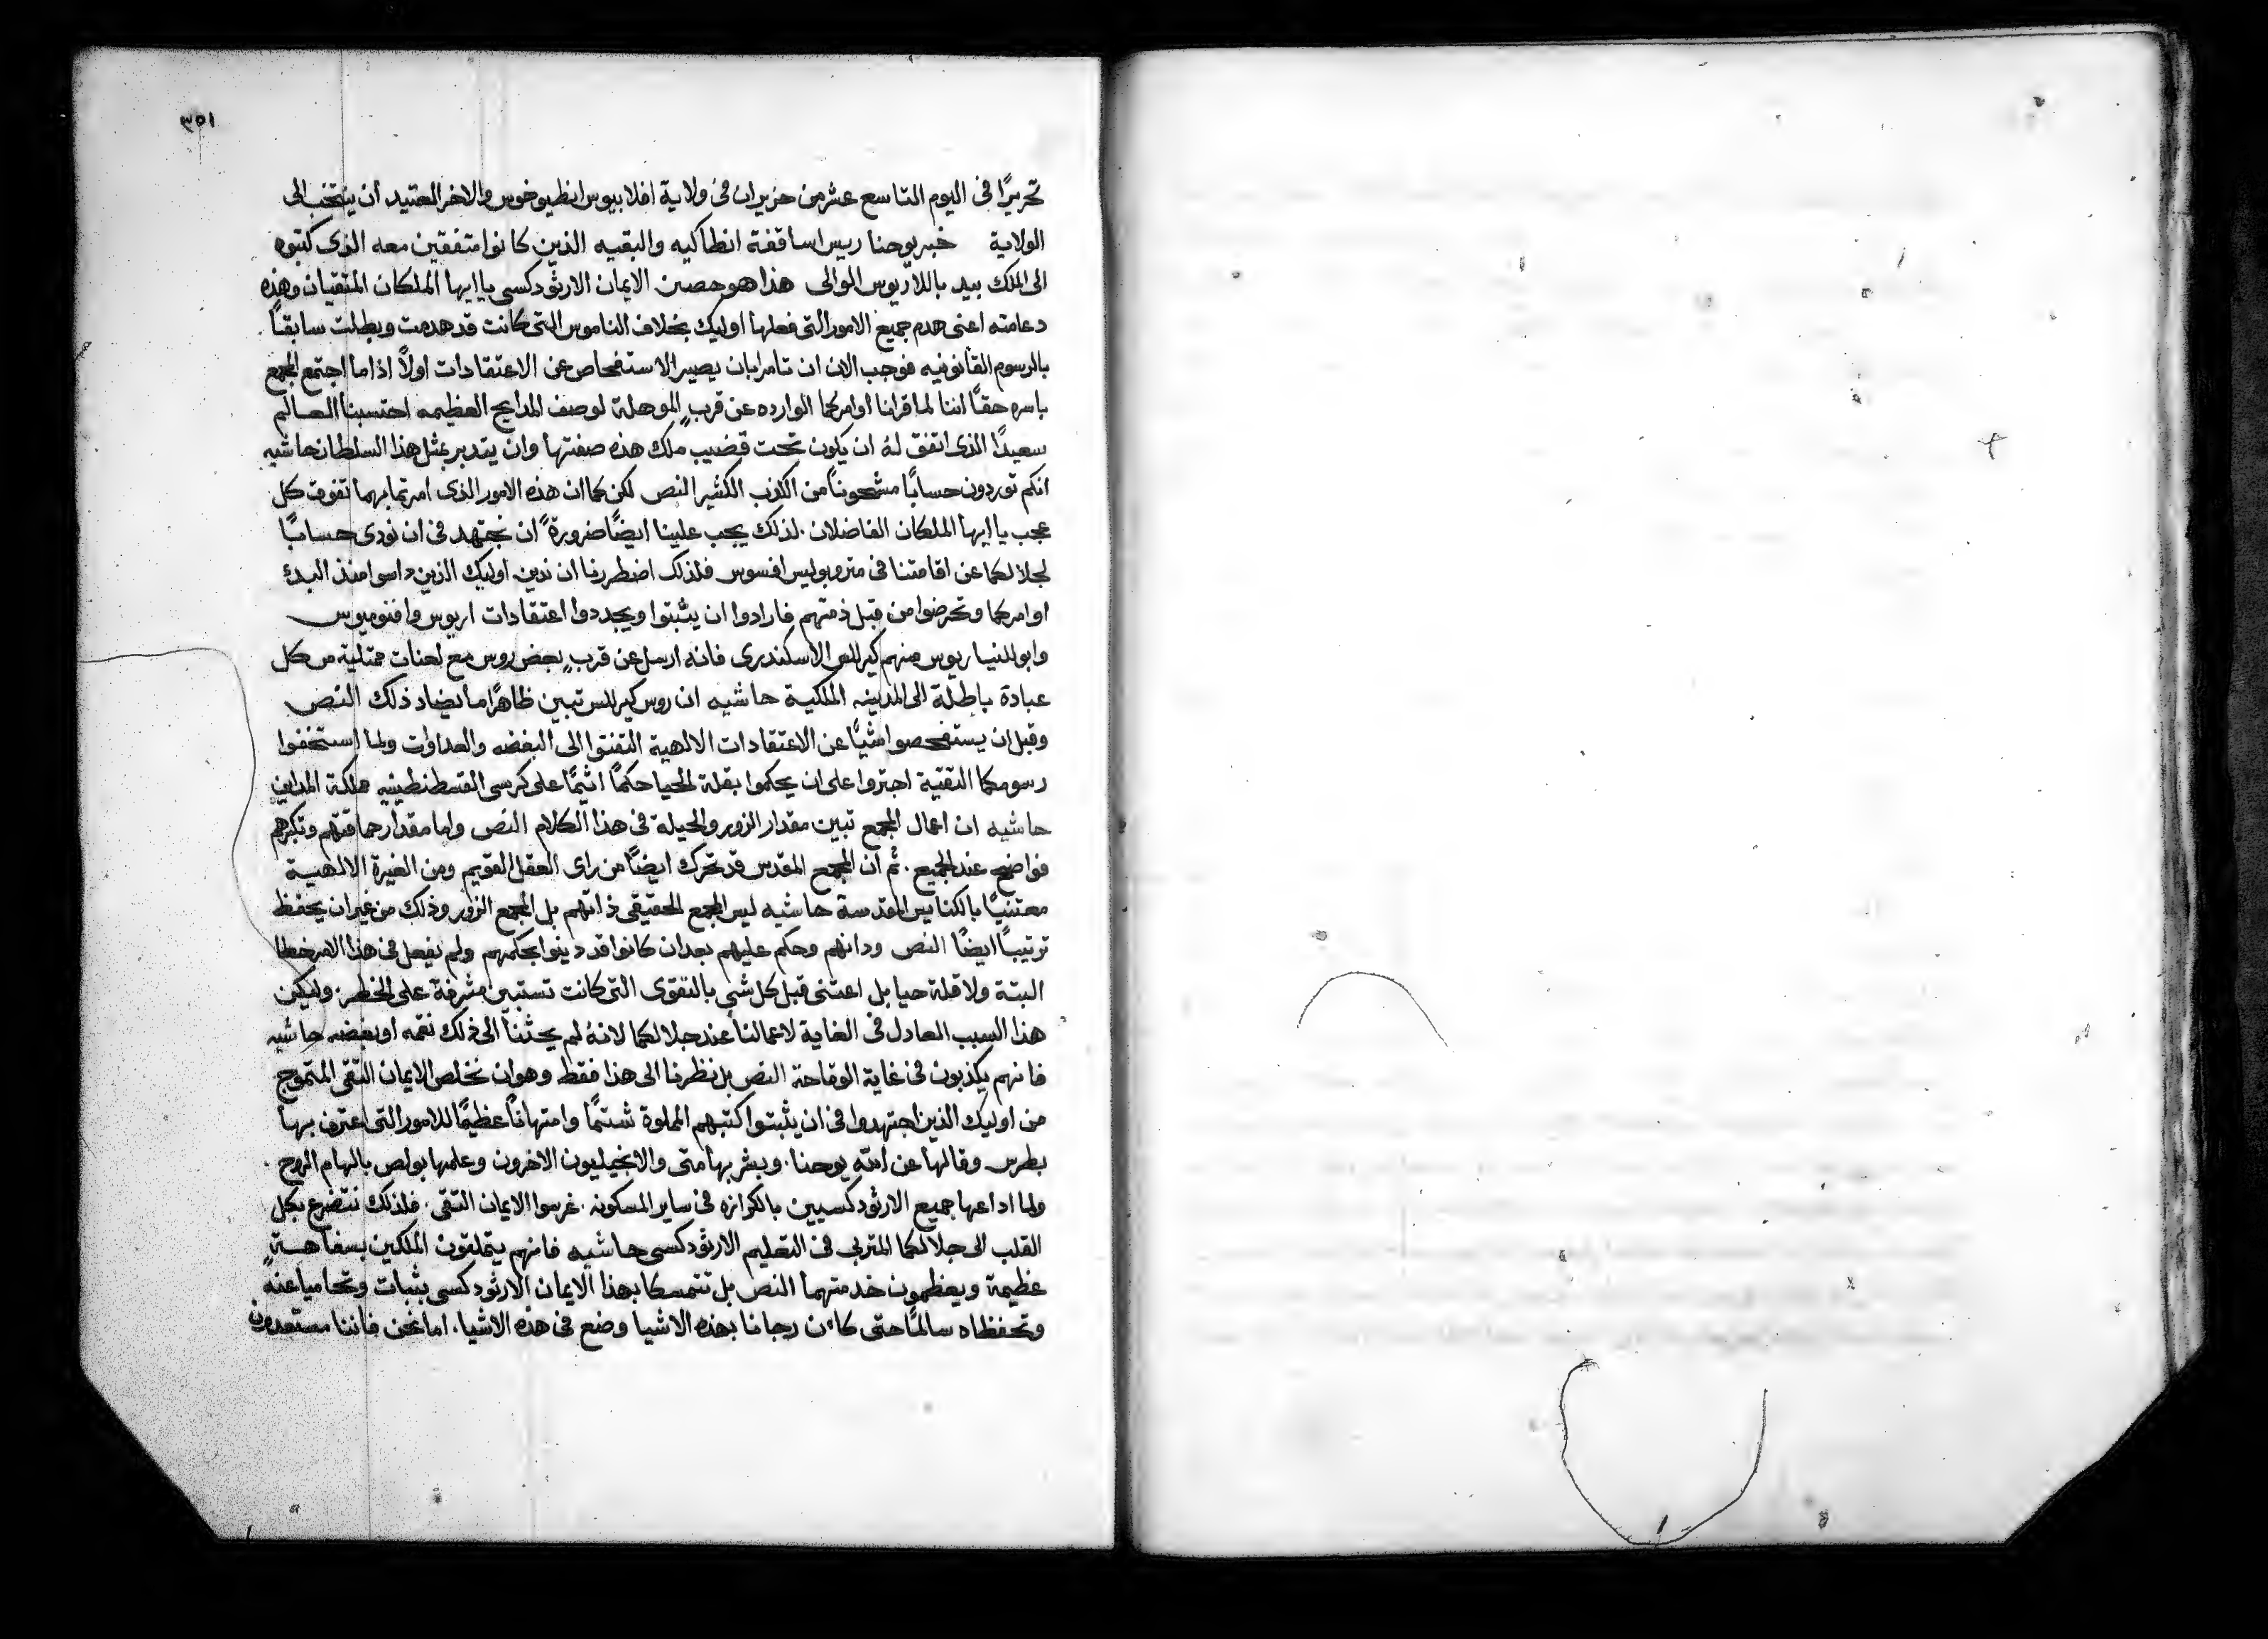 ٣٥١
تحريرًا فى اليوم التاسع عشر من حزيران فى ولاية افلابيوس انطيوخوس والاخر العتيد ان ينتخب الى
الولاية خبر يوحنا ريس اساقفة انطاكيه والبقيه الذين كانوا متفقين معه الذى كتبوه
الى الملك بيد باللاديوس الوالى هذا هو حصن الايمان الارثودكسى يا ايها الملكان المتقيان وهذه
دعامته اعنى هدم جميع الامور التى فعلها اوليك بخلاف الناموس التى كانت قد هدمت وبطلت سابقًا
بالرسوم القانونيه فوجب الان ان تامرا بان يصير الاستفحاص عن الاعتقادات اولاً اذا ما اجتمع المجمع
باسره حقًا اننا لما قرانا اوامركما الوارده عن قربٍ الموهلة لوصف المدايح العظيمه احتسبنا العالم
سعيدًا الذى اتفق له ان يكون تحت قضيب ملك هذه صفتها وان يتدبر بمثل هذا السلطان حاشيه
انكم توردون حسابًا مشحونًا من الكذب الكثير النص لكن كما ان هذه الامور الذى امرتما بهما تفوق كل
عجب يا ايها الملكان الفاضلان. لذلك يجب علينا ايضًا ضرورةً ان نجتهد فى ان نودى حسابًا
لجلالكما عن اقامتنا فى متروبوليس افسوس فلذلك اضطررنا ان ندين اوليك الذين داسوا منذ البدء
اوامركما وتحرضوا من قبل ذمتهم فارادوا ان يثبتوا ويجددوا اعتقادات اريوس وافنوميوس
وابوللنياريوس منهم كيرللس الاسكندرى فانه ارسل عن قربٍ بعض روس مع لعنات ممتلية من كل
عبادة باطلة الى المدينه الملكية حاشيه ان روس كيرللس تبين ظاهرًا ما يضاد ذلك النص
وقبل ان يستفحصوا شيًا عن الاعتقادات الالهية التفتوا الى البغضه والعداوات ولما استخفوا
رسومكما التقية اجتروا على ان يحكموا بقلة الحيا حكمًا اثيمًا على كرسى القسطنطينيه مملكة المداين
حاشيه ان اعمال المجمع تبين مقدار الزور والحيلة فى هذا الكلام النص واما مقدار حماقتهم وتكبرهم
فواضح عند الجميع. ثم ان المجمع المقدس قد تحرك ايضًا من راى العقل القويم ومن الغيرة الالهية
معتنيًا بالكنايس المقدسة حاشيه ليس المجمع الحقيقى ذاتهم بل المجمع الزور وذلك من غير ان يحفظ
ترتيبًا ايضًا النص ودانهم وحكم عليهم بعد ان كانوا قد دينوا بحكمهم ولم نفعل فى هذا الامر خطا
البتة ولا قلة حيا بل اعتنى قبل كل شى بالتقوى التى كانت تستبين مشرفة على الخطر. وليكن
هذا السبب العادل فى الغاية لاعمالنا عند جلالكما لانه لم يحثنا الى ذلك نقمه او بغضه حاشيه
فانهم يكذبون فى غاية الوقاحة النص بل نظرنا الى هذا فقط وهو ان نخلص الايمان التقى المتموج
من اوليك الذين اجتهدوا فى ان يثبتوا كتبهم المملوة شتمًا وامتهانًا عظيمًا للامور التى اعترف بها
بطرس وقالها عن الله يوحنا. وبشر بها متى والانجيليون الاخرون وعلمها بولص بالهام الروح.
ولما اداعها جميع الارثودكسيين بالكرازه فى ساير المسكونه. غرسوا الايمان التقى. فلذلك نتضرع بكل
القلب الى جلالكما المتربى فى التعليم الارثودكسى حاشيه فانهم يتملقون الملكين بسفاهةٍ
عظيمة ويعظمون خدمتهما النص بل تتمسكا بهذا الايمان الارثودكسى بثبات وتحاميا عنه
وتحفظاه سالمًا حتى كان رجانا بهذه الاشيا وضع فى هذه الاشيا. اما نحن فاننا مستعدون